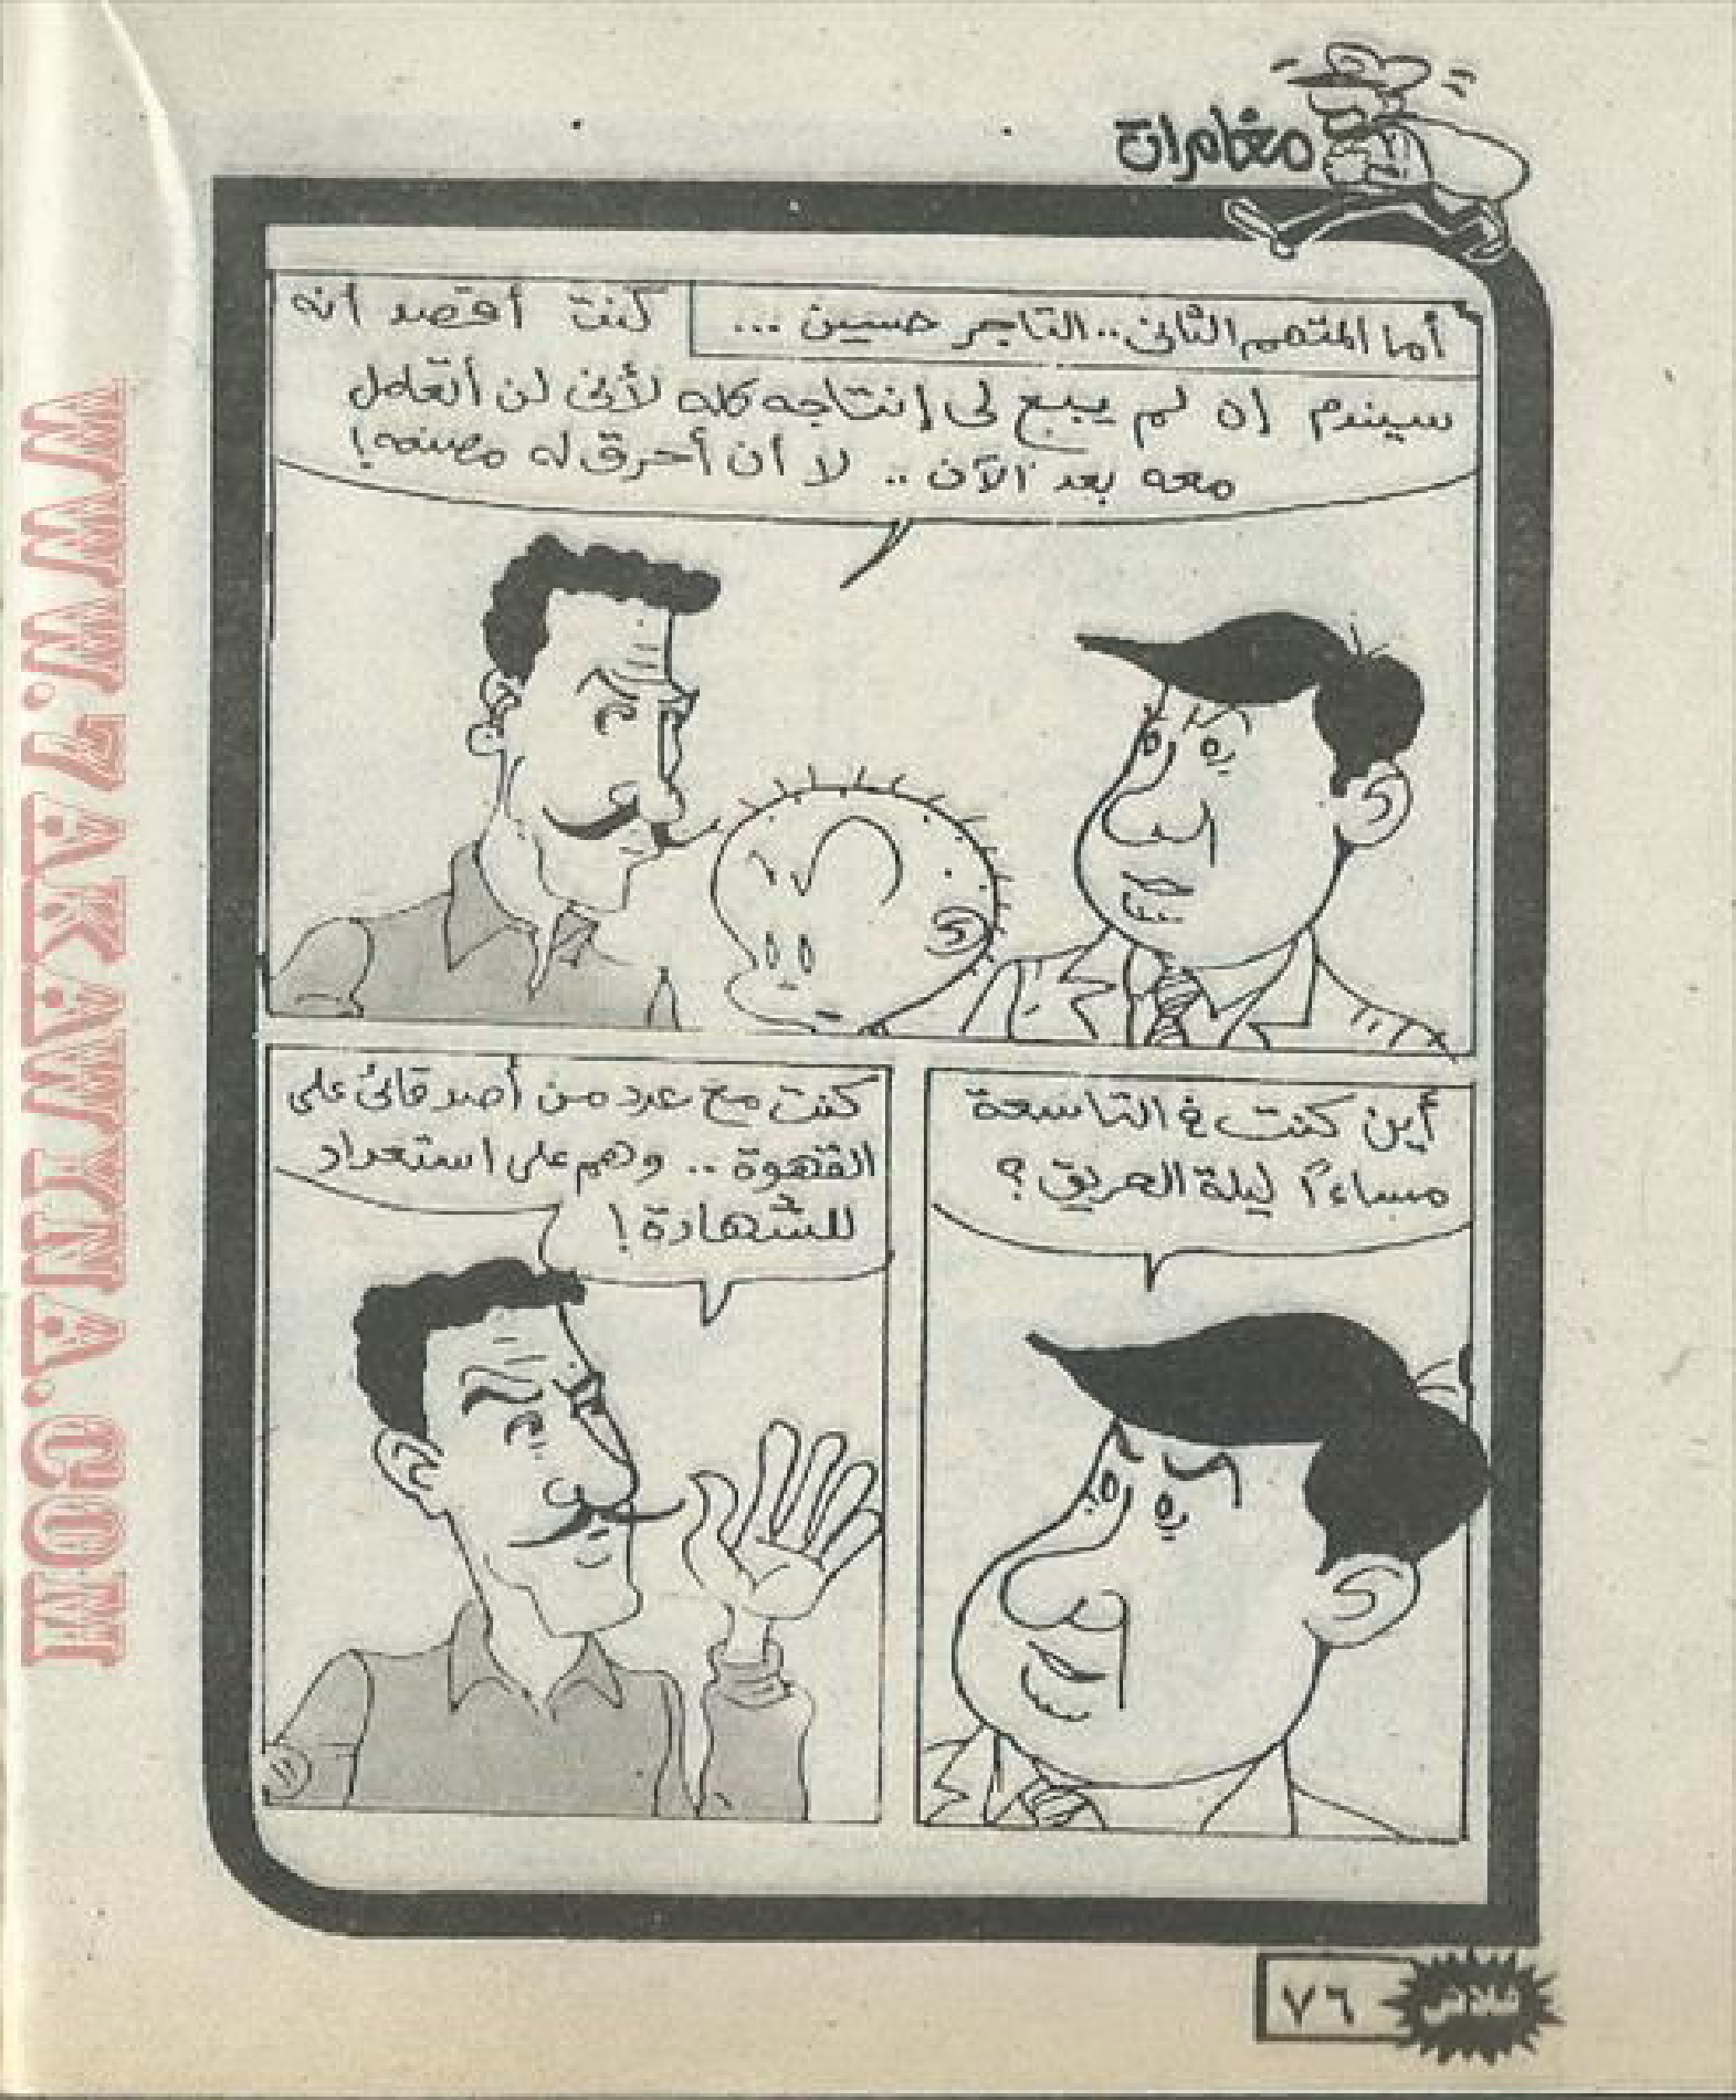 مغامرات
أما المتهم الثانى.. التاجر حسين ...
كنت أقصد أنه
سيندم إن لم يبع لى إنتاجه كله لأنى لن أتعامل
معه بعد الآن .. لا أن أحرق له مصنعه!
أين كنت فى التاسعة
مساءً ليلة الحريق؟
كنت مع عدد من أصدقائى على
القهوة .. وهم على استعداد
للشهادة!
٧٦
فلاش
WWW.7AKAWINNA.COM